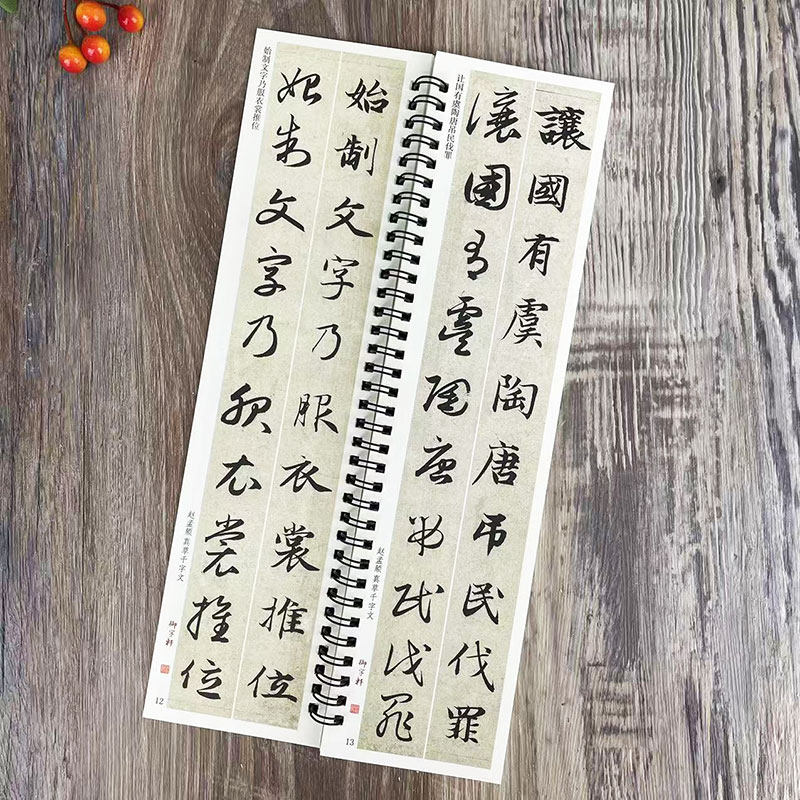 始制文字乃服衣裳推位
始制文字乃服衣裳推位
始制文字乃服衣裳推位
赵孟頫 真草千字文
12
让国有虞陶唐吊民伐罪
讓國有虞陶唐吊民伐罪
讓國有虞陶唐吊民伐罪
赵孟頫 真草千字文
13